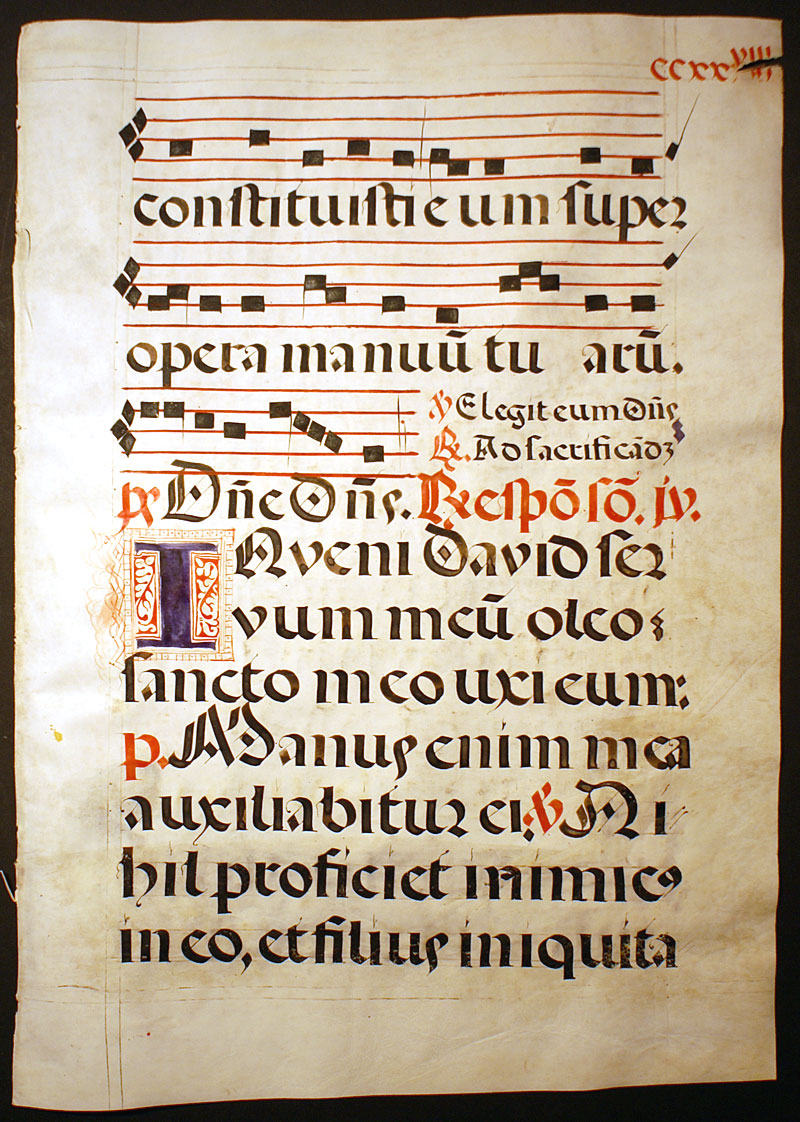 CCXXVIII
constituisti eum super
opera manuū tu arū.
℣ Elegit eum Dn̄s
℟. Ad sacrificādꝫ
ps Dn̄e Dn̄s. Respōsō. jv.
INveni David ser
vum meū oleo
sancto meo uxi eum:
p. Manus enim mea
auxiliabitur ei ℣ Ni
hil proficiet inimicꝰ
in eo, et filius iniquita